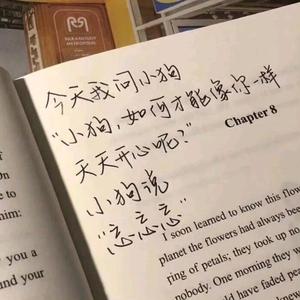 今天我问小狗
"小狗,如何才能像你一样
天天开心呢?"
小狗说
"忘忘忘"
Chapter 8
I soon learned to know this flow
planet the flowers had always been
ring of petals; they took up no
nobody. One morning they w
would have faded pea
him:
you a
und your